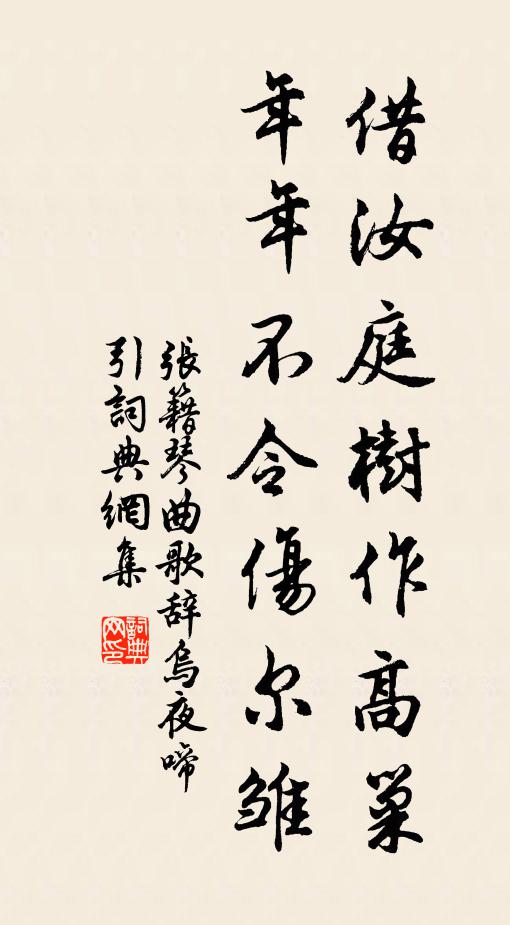 借汝庭樹作高巢
年年不令傷尔雛
張籍琴曲歌辞烏夜啼
引詞典網集
詞典
网印